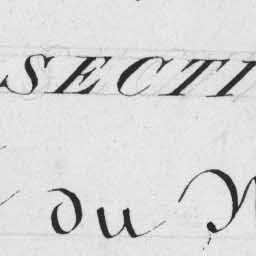 SECTI
du N